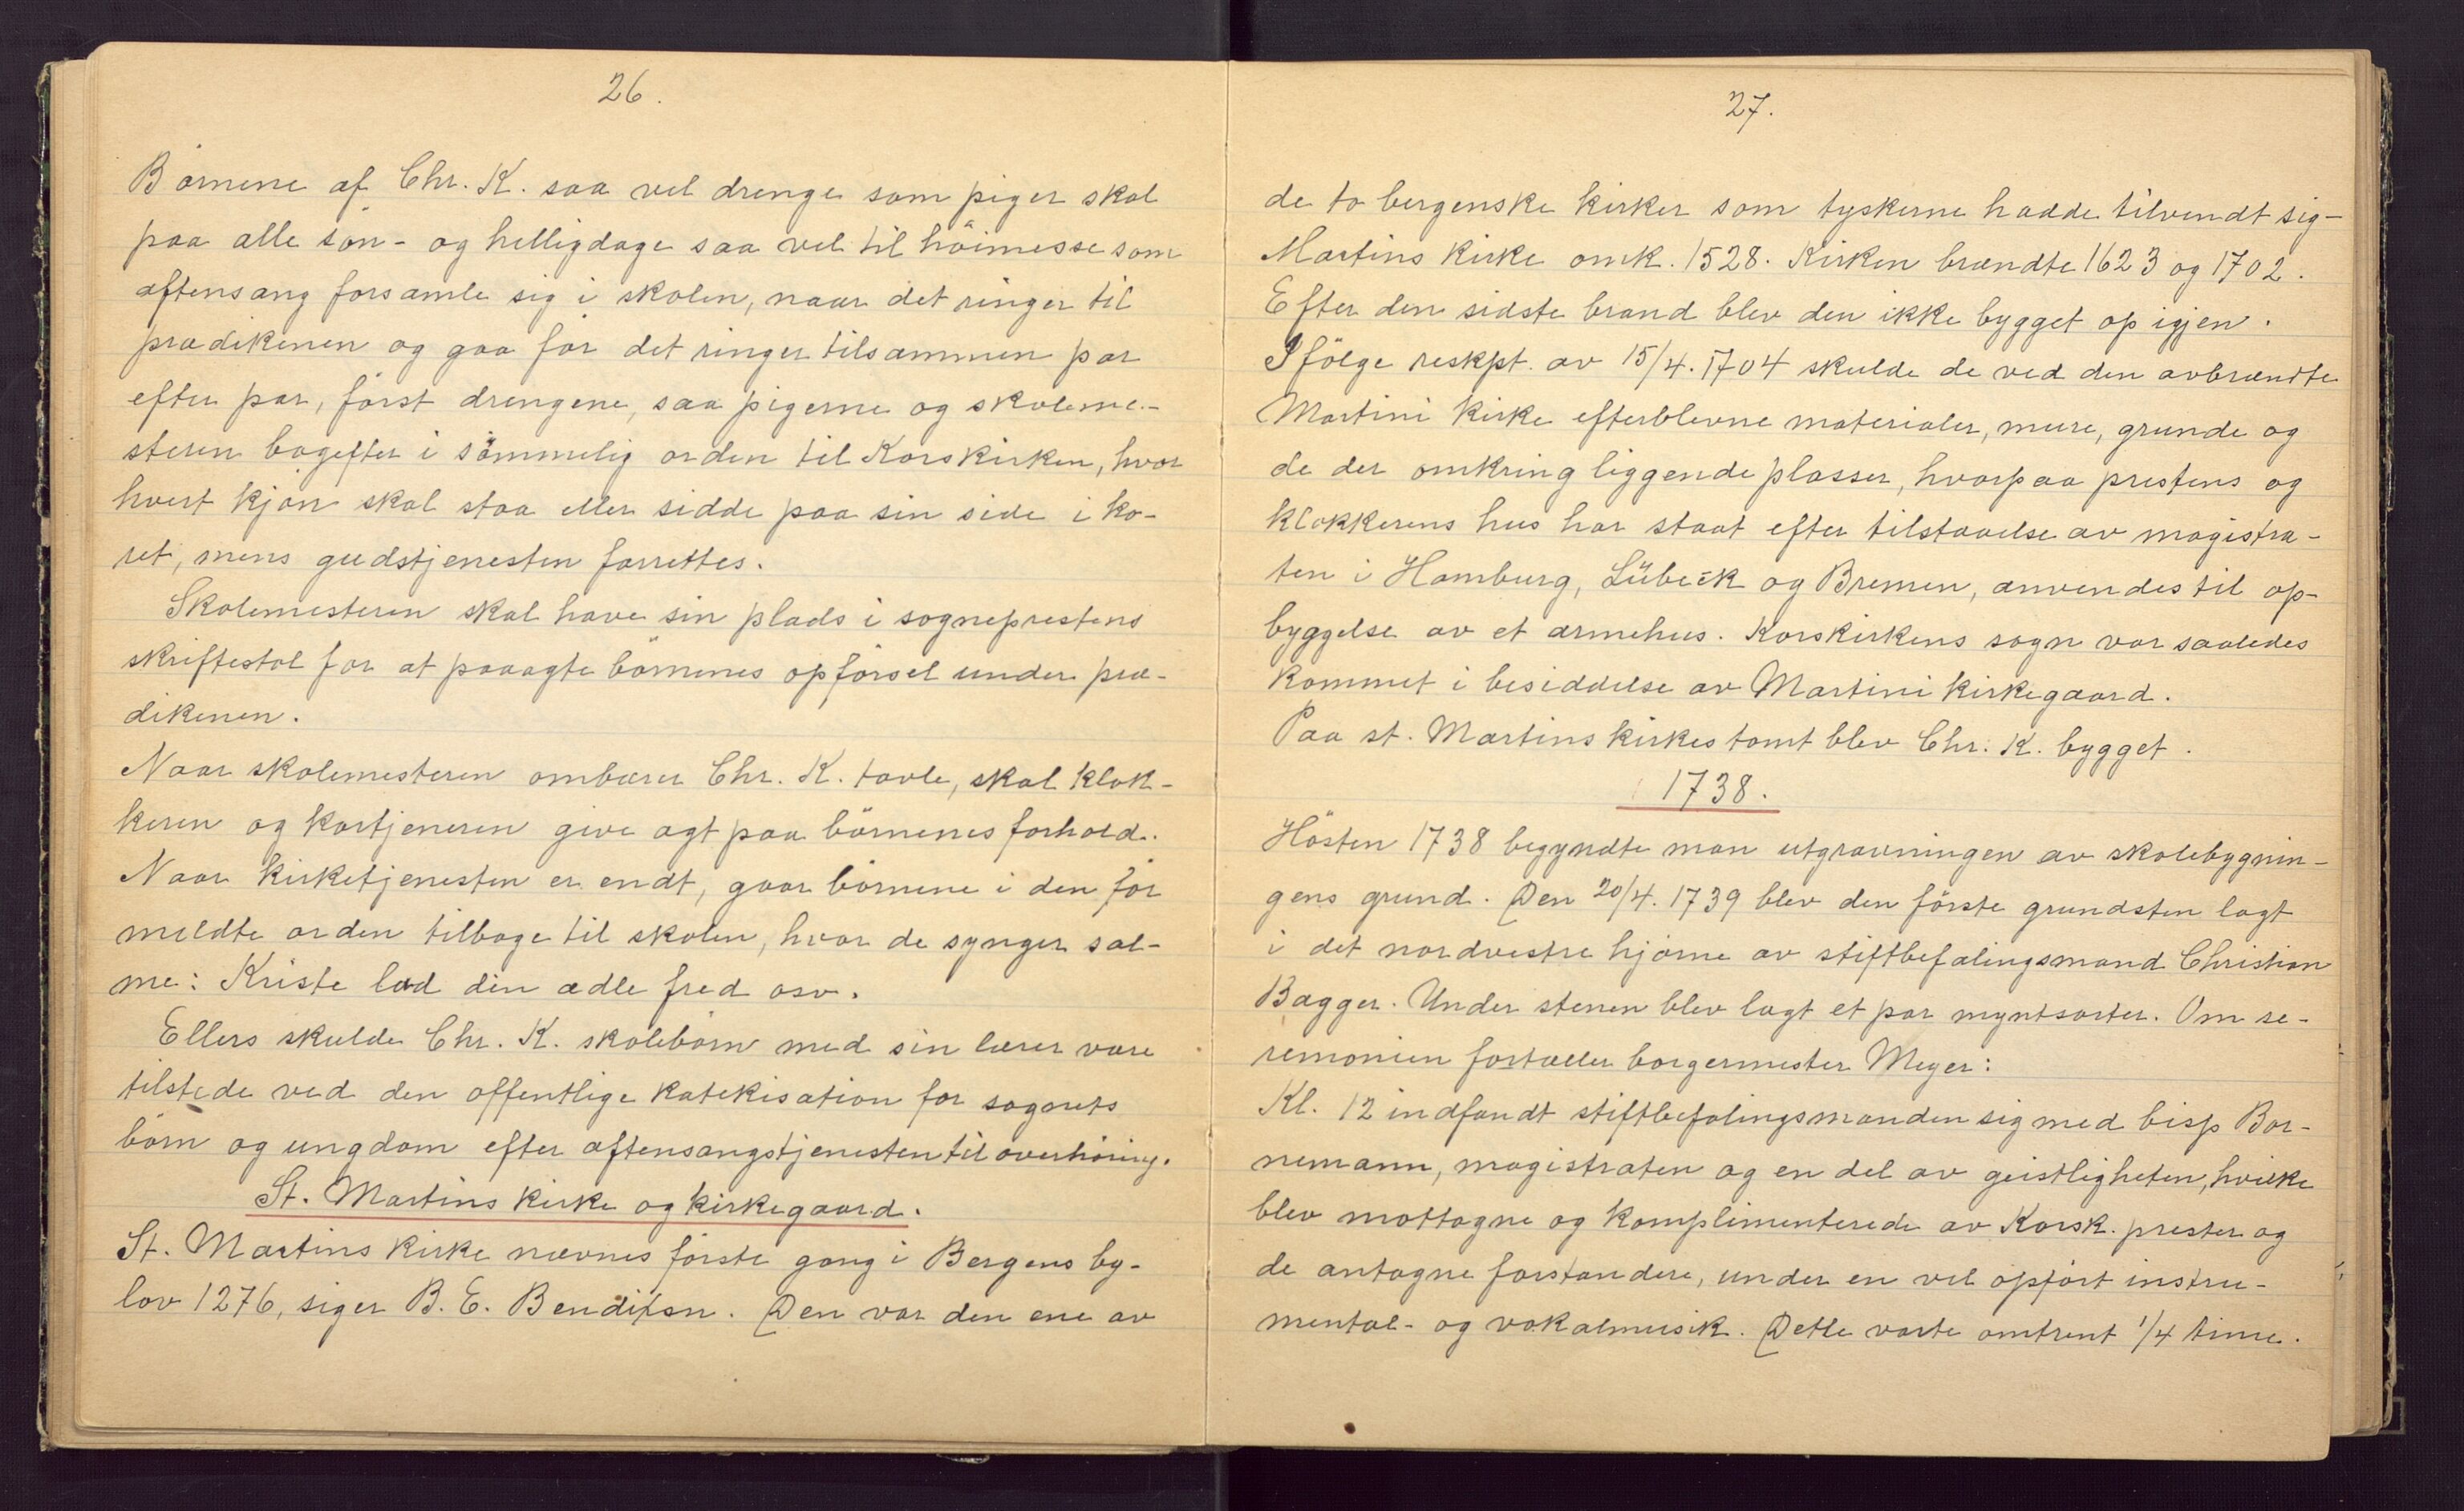 26.
Börnene af Chr. K. saa vel drenge som piger skal
paa alle sön- og helligdage saa vel til höimesse som
aftensang forsamle sig i skolen, naar det ringer til
prædikenen og gaa för det ringer tilsammen par
efter par, först drengene, saa pigerne og skoleme-
steren bagefter i sömmelig orden til Korskirken, hvor
hvert kjön skal staa eller sidde paa sin side i ko-
ret, mens gudstjenesten forrettes.
Skolemesteren skal have sin plads i sogneprestens
skriftestol for at paaagte börnenes opförsel under præ-
dikenen.
Naar skolemesteren ombærer Chr. K. tavle, skal klok-
keren og kortjeneren give agt paa börnenes forhold.
Naar kirketjenesten er endt, gaar börnene i den för
meldte orden tilbage til skolen, hvor de synger sal-
me: Kriste lad din ædle fred osv.
Ellers skulde Chr. K. skolebörn med sin lærer være
tilstede ved den offentlige katekisation for sognets
börn og ungdom efter aftensangstjenesten til overhöring.
St. Martins kirke og kirkegaard.
St. Martins kirke nævnes förste gang i Bergens by-
lov 1276, siger B. E. Bendixsn. Den var den ene av
27.
de to bergenske kirker som tyskerne hadde tilvendt sig-
Martins kirke omk. 1528. Kirken brændte 1623 og 1702.
Efter den sidste brand blev den ikke bygget op igjen.
Ifölge reskpt. av 15/4. 1704 skulde de ved den avbrændte
Martini kirke efterblevne materialer, mure, grunde og
de der omkring liggende plasser, hvorpaa prestens og
klokkerens hus har staat efter tilstaaelse av magistra-
ten i Hamburg, Lübeck og Bremen, anvendes til op-
byggelse av et armehus. Korskirkens sogn var saaledes
kommet i besiddelse av Martini kirkegaard.
Paa st. Martins kirkes tomt blev Chr. K. bygget.
1738.
Hösten 1738 begyndte man utgravningen av skolebygnin-
gens grund. Den 20/4. 1739 blev den förste grundsten lagt
i det nordvestre hjörne av stiftbefalingsmand Christian
Bagger. Under stenen blev lagt et par myntsorter. Om se-
remonien fortæller borgermester Meyer:
Kl. 12 indfandt stiftbefalingsmanden sig med bisp Bor-
nemann, magistraten og en del av geistligheten, hvilke
blev mottagne og komplimenterede av Korsk. prester og
de antagne forstandere, under en vel opfört instru-
mental- og vokalmusik. Dette varte omtrent 1/4 time.